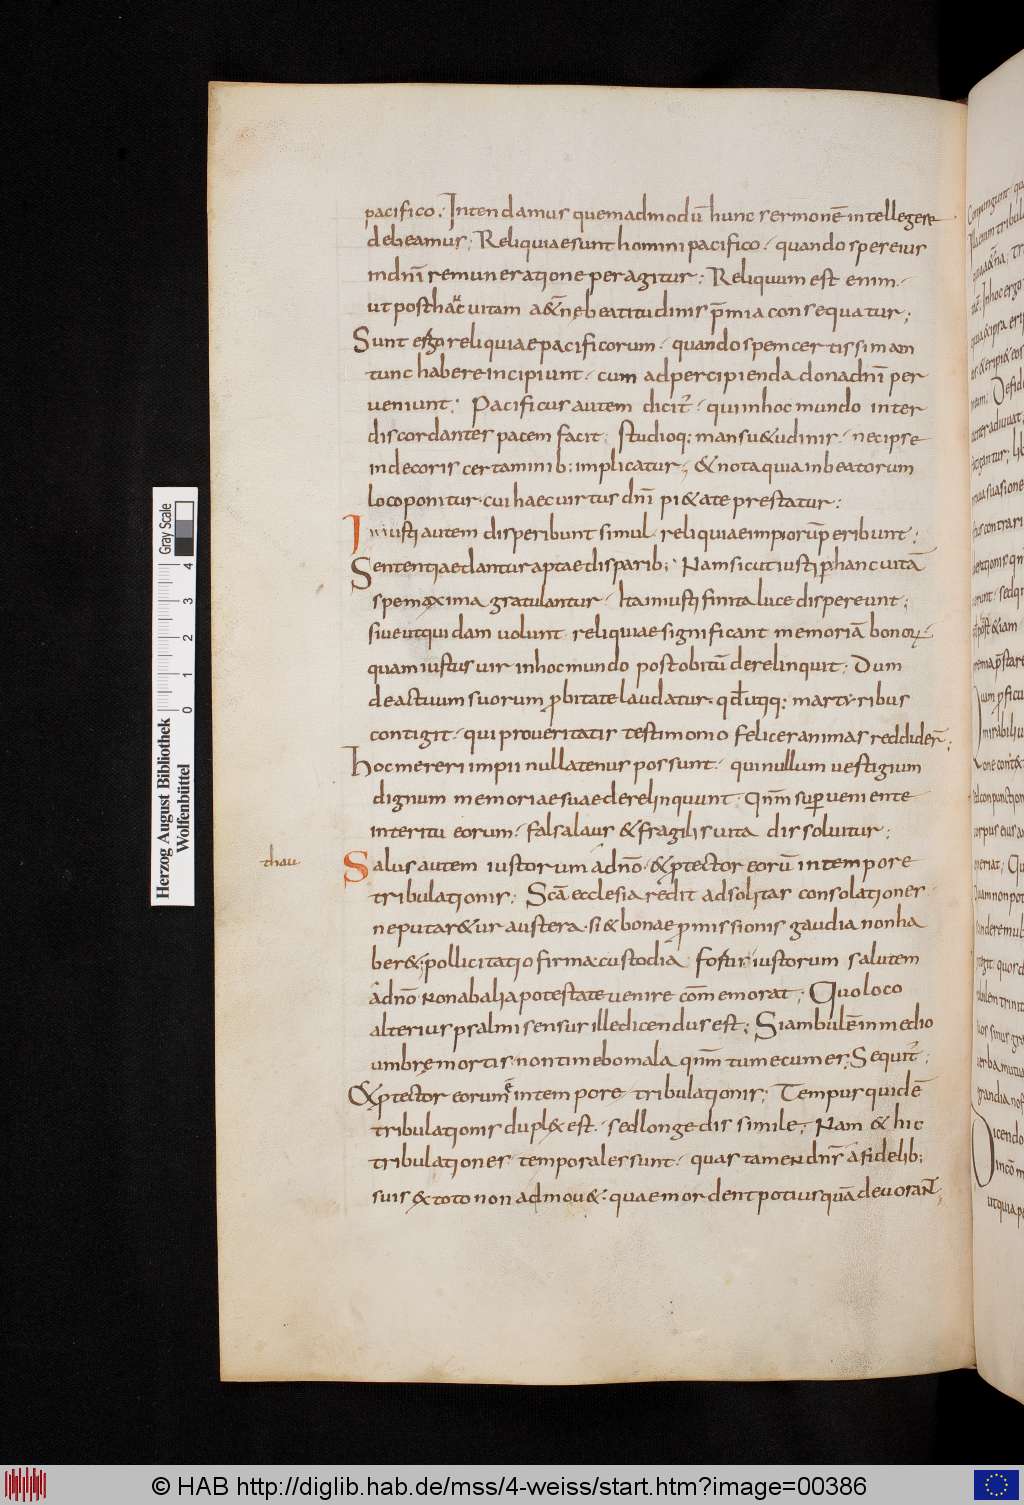 pacifico. Intendamus quemadmodū hunc sermonē intellegere
debeamus; Reliquiae sunt homini pacifico. quando spes eius
in dnī remuneratione peragitur; Reliquum est enim.
ut post hāc vitam aetnę beatitudinis p̄mia consequatur;
Sunt ergo reliquiae pacificorum. quando spem certissimam
tunc habere incipiunt. cum ad percipienda dona dnī per
veniunt; Pacificus autem dicit̄. qui in hoc mundo inter
discordantes pacem facit. studioq; mansu&udinis. nec ipse
indecoris certaminib; implicatur; & nota quia in beatorum
loco ponitur. cui haec virtus dnī pi&ate prestatur;
Iniusti autem disperibunt simul. reliquiae impiorū peribunt;
Sententiae dantur aptae disparib; Nam sicut iusti p hanc vitā
spe maxima gratulantur. Ita iniusti finita luce dispereunt;
sive ut quidam volunt reliquiae significant memoriā bonorū.
quam iustus vir in hoc mundo post obitū derelinquit. Dum
de actuum suorum probitate laudatur. qd utiq; martyribus
contigit. qui pro veritatis testimonio felices animas reddider̄;
hoc mereri impii nullatenus possunt. qui nullum vestigium
dignum memoriae suae derelinquunt. qnm superveniente
interitu eorum. falsa laus & fragilis vita dissolvitur;
thau
Salus autem iustorum a dnō. & ptector eorū in tempore
tribulationis; Scā ecclesia redit ad solitas consolationes
ne putar&ur austera. si & bonae pmissionis gaudia non ha
ber&; pollicitatio firma custodia fortis iustorum salutem
a dnō non ab alia potestate venire cōmemorat; Quo loco
alterius psalmi sensus ille dicendus est; Si ambulē in medio
umbrę mortis. non timebo mala qnm tu mecum es; Sequit̄;
& ptector eorum ē in tempore tribulationis; Tempus quidē
tribulationis duplex est. sed longe dissimile; Nam & hic
tribulationes temporales sunt. quas tamen dns a fidelib;
suis ex toto non admov&. quae mordent potius quā devorant;
Herzog August Bibliothek
Wolfenbüttel
Gray Scale
0 1 2 3 4
© HAB http://diglib.hab.de/mss/4-weiss/start.htm?image=00386